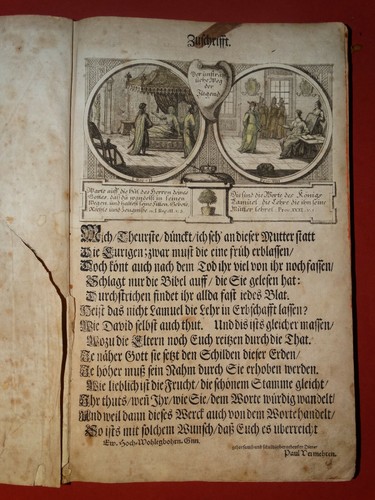 Zuschrifft.
Der unstraͤfliche Weg
der
Jugend
Warte auff die Hut des Herren deines
Gottes, daß du wandelst in seinen
Wegen, und haltest seine Sitten, Gebote
Rechte und Zeugniße
Diß sind die Worte des Königs
Lamuel, die Lehre die ihn seine
Mutter lehret. Prov. XXXI.
Mich, Theurste, dünckt, ich seh' an dieser Mutter statt
Die Eurigen: zwar must die eine früh erblassen,
Doch könt auch nach dem Tod ihr viel von ihr noch fassen,
Schlagt nur die Bibel auff, die Sie gelesen hat:
Durchstrichen findet ihr allda fast iedes Blat.
Heist das nicht Lamuel die Lehr in Erbschafft lassen?
Wie David selbst auch thut. Und dis ists gleicher massen,
Wozu die Eltern noch Euch reitzen durch die That.
Je näher Gott sie setzt den Schilden dieser Erden,
Je höher muß sein Ruhm durch Sie erhoben werden.
Wie lieblich ist die Frucht, die schönem Stamme gleicht,
Ihr thuts, wen̄ Ihr, wie Sie, dem Worte würdig wandelt,
Und weil dann dieses Werck auch von dem Worte handelt,
So ists mit solchem Wunsch, daß Euch es überreicht
Ew. Hoch-Wohlegbohrn. Gnn.
Paul Vermehren.